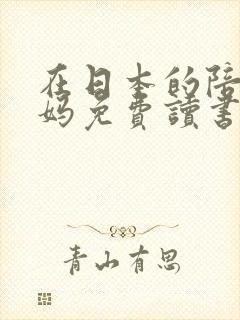 在日本的陪
妈免費讀書
青山有思